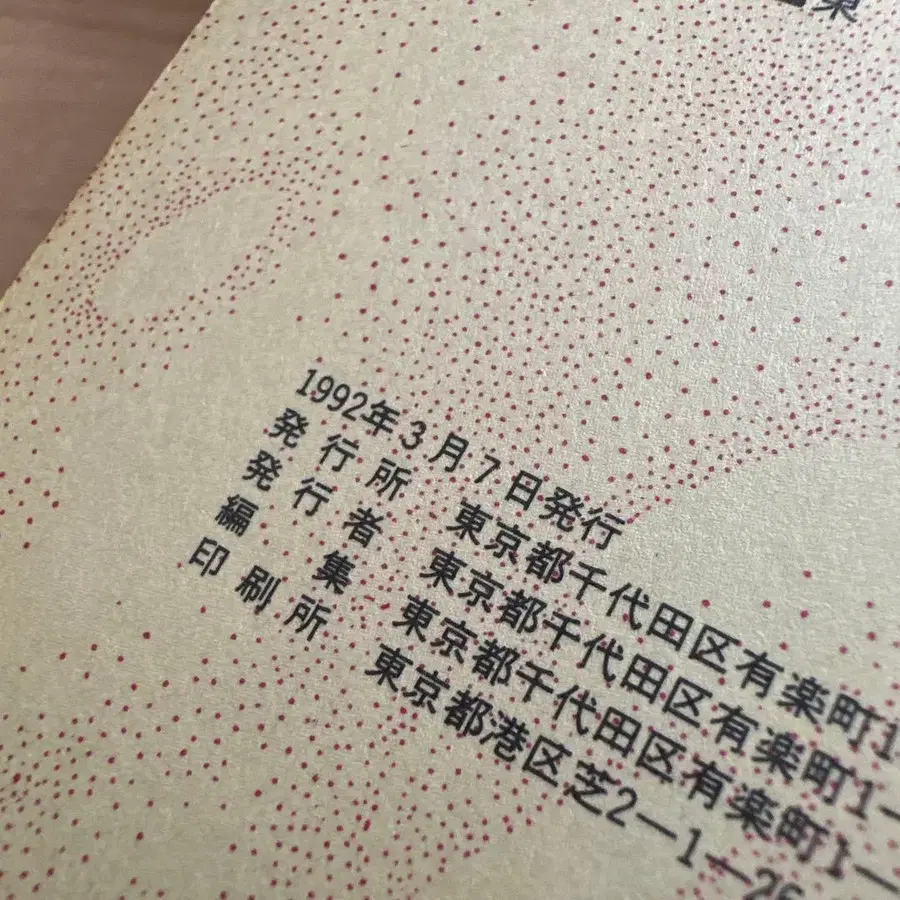 集
1992年3月7日発行
発行所 東京都千代田区有楽町1
発行者 東京都千代田区有楽町1—
編集 東京都千代田区有楽町1—
印刷所 東京都港区芝2—1—26